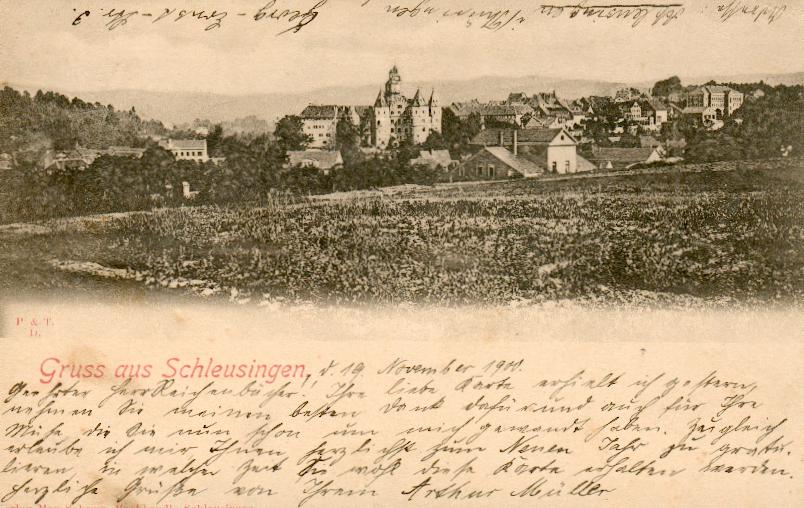 P. & T.
D.
Gruss aus Schleusingen, d. 19. November 1900.
Geehrter Herr Reichenbücher!! Ihre liebe Karte erhielt ich gestern,
nehmen Sie meinen besten Dank dafür und auch für Ihre
Mühe die Sie nun schon um mich gewandt haben. Zugleich
erlaube ich mir Ihnen herzlichst zum Neuen Jahr zu gratu-
lieren, zu welcher Zeit Sie wohl diese Karte erhalten werden.
Herzliche Grüße von Ihrem Arthur Müller
Schleusingen